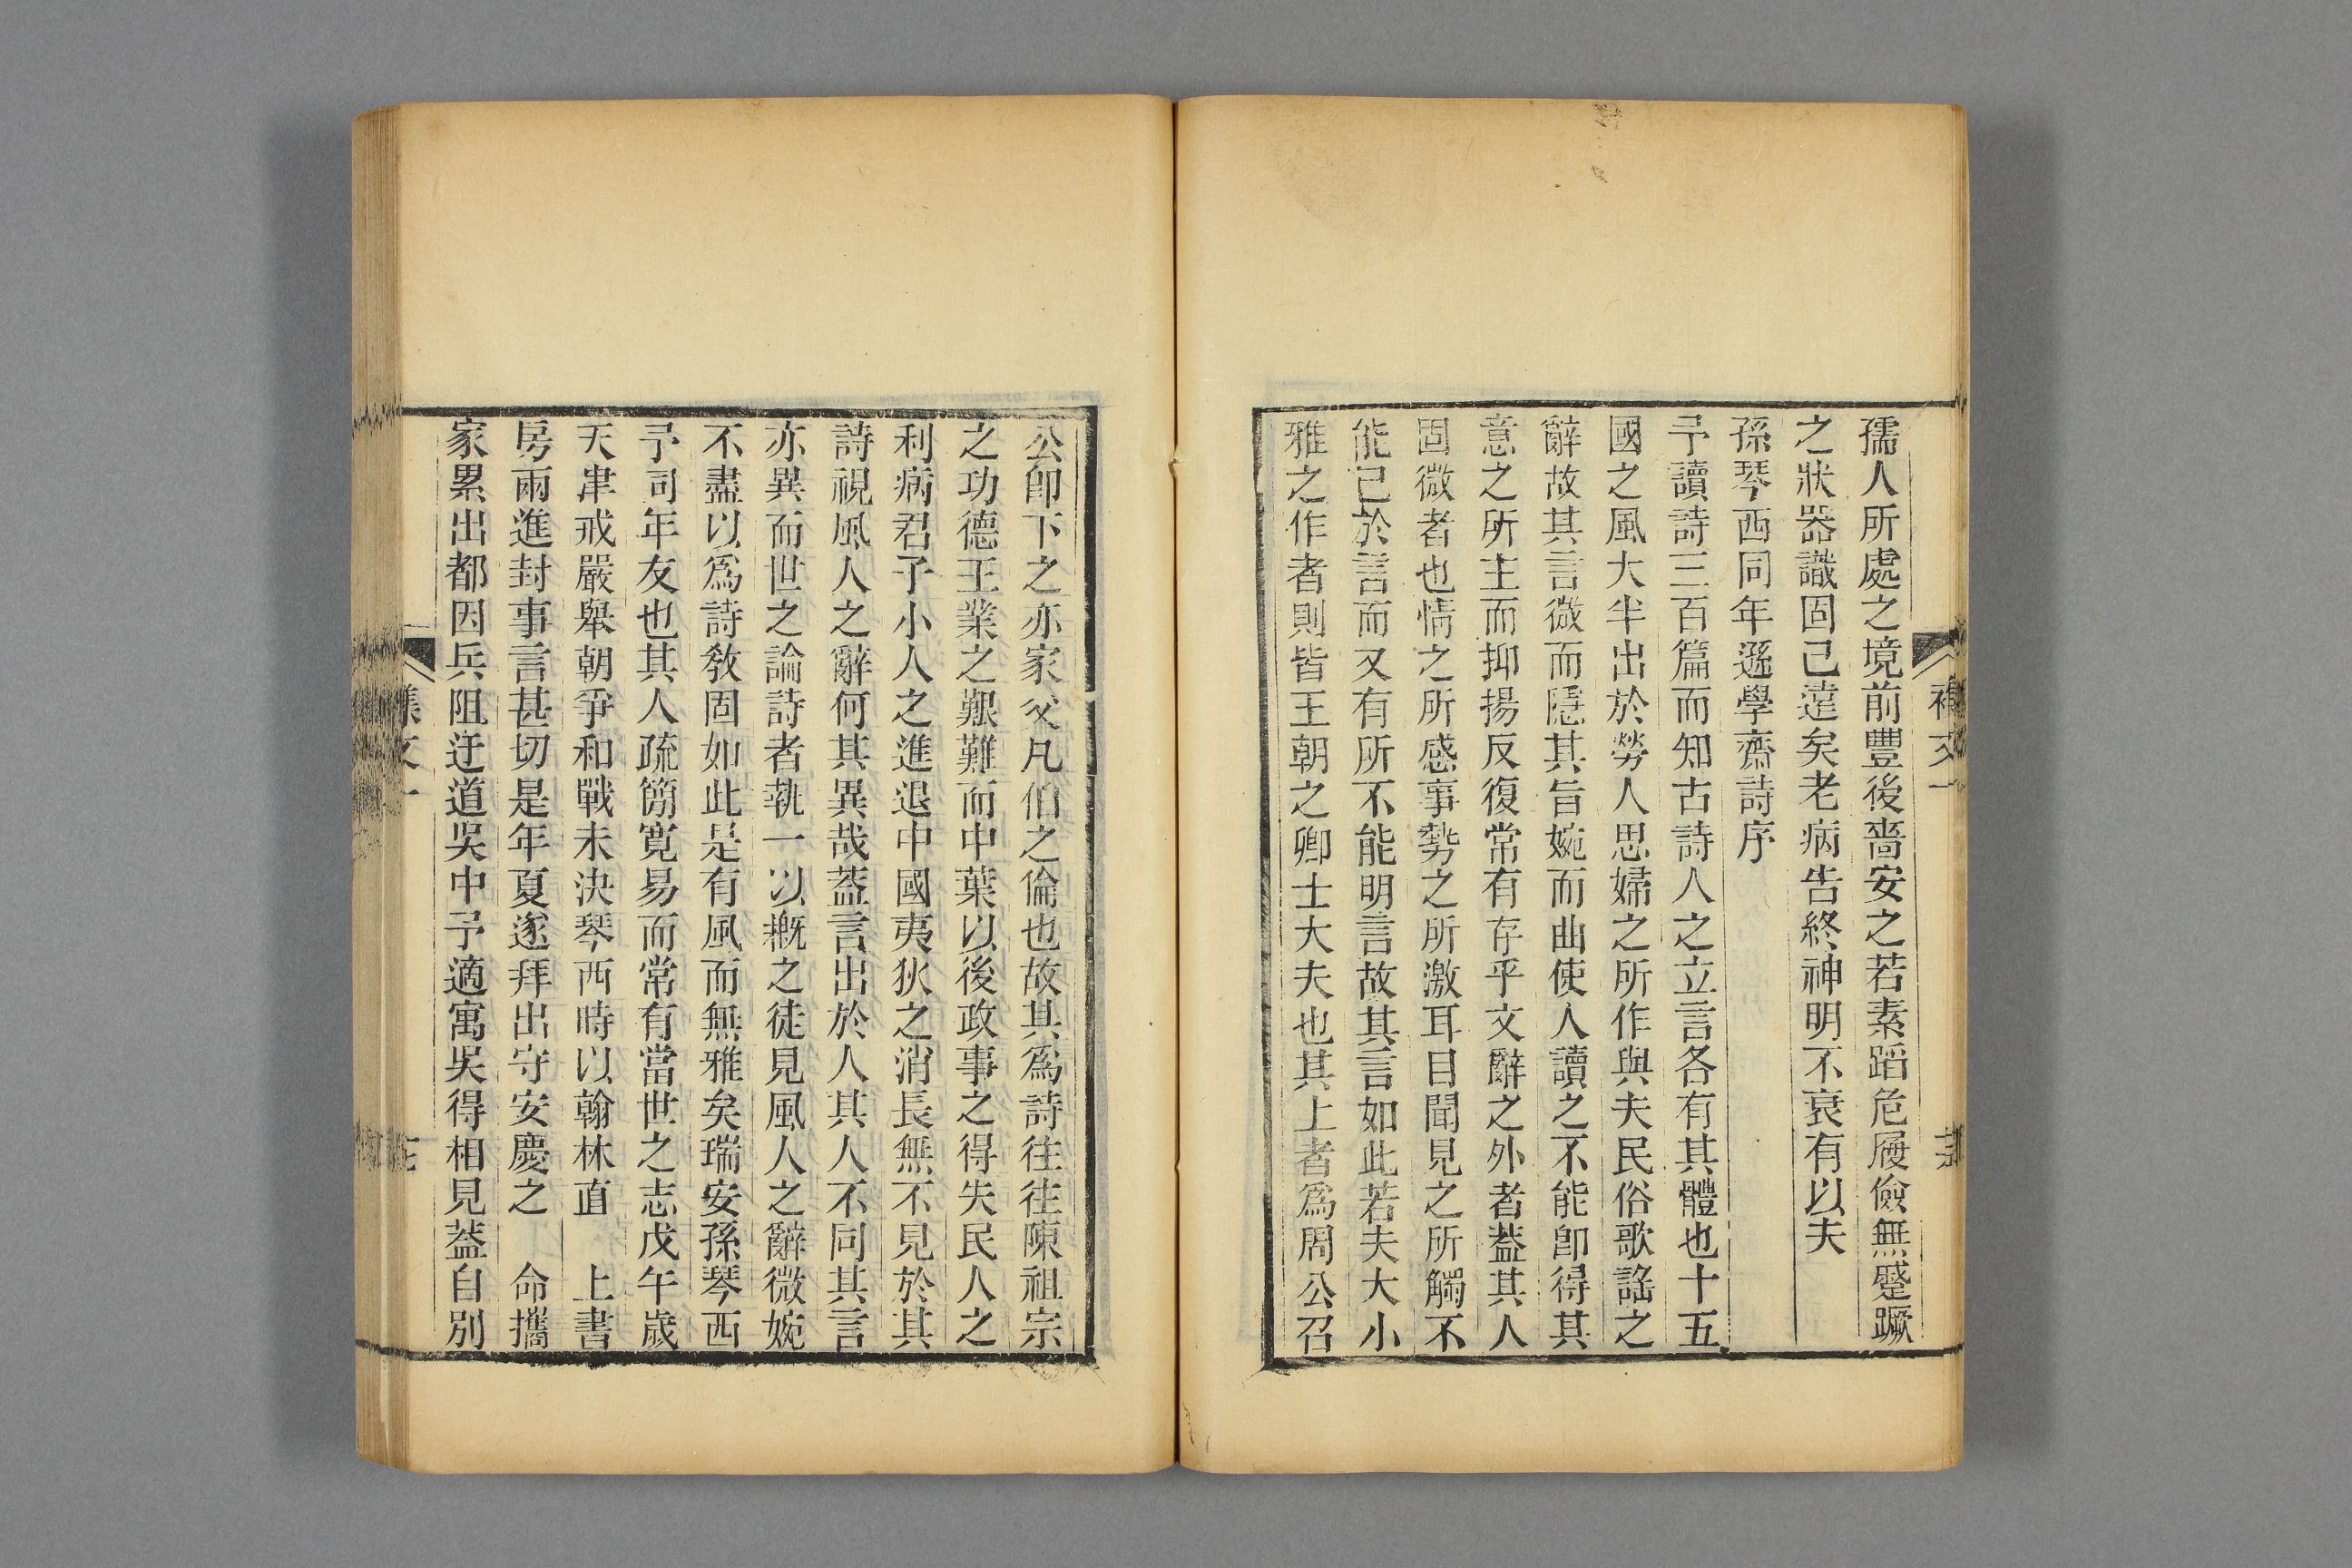 孺人所處之境前豐後嗇安之若素蹈危履儉無蹙蹶
之狀器識固已遠矣老病告終神明不衰有以夫
孫琴西同年遜學齋詩序
予讀詩三百篇而知古詩人之立言各有其體也十五
國之風大半出於勞人思婦之所作與夫民俗歌謠之
辭故其言微而隱其旨婉而曲使人讀之不能卽得其
意之所主而抑揚反復常有存乎文辭之外者葢其人
固微者也情之所感事勢之所激耳目聞見之所觸不
能已於言而又有所不能明言故其言如此若夫大小
雅之作者則皆王朝之卿士大夫也其上者爲周公召
公卽下之亦家父凡伯之倫也故其爲詩往往陳祖宗
之功德王業之艱難而中葉以後政事之得失民人之
利病君子小人之進退中國夷狄之消長無不見於其
詩視風人之辭何其異哉葢言出於人其人不同其言
亦異而世之論詩者執一以槪之徒見風人之辭微婉
不盡以爲詩敎固如此是有風而無雅矣瑞安孫琴西
予同年友也其人疏簡寬易而常有當世之志戊午歲
天津戒嚴舉朝爭和戰未決琴西時以翰林直　上書
房兩進封事言甚切是年夏遂拜出守安慶之　命攜
家累出都因兵阻迂道吳中予適寓吳得相見葢自別